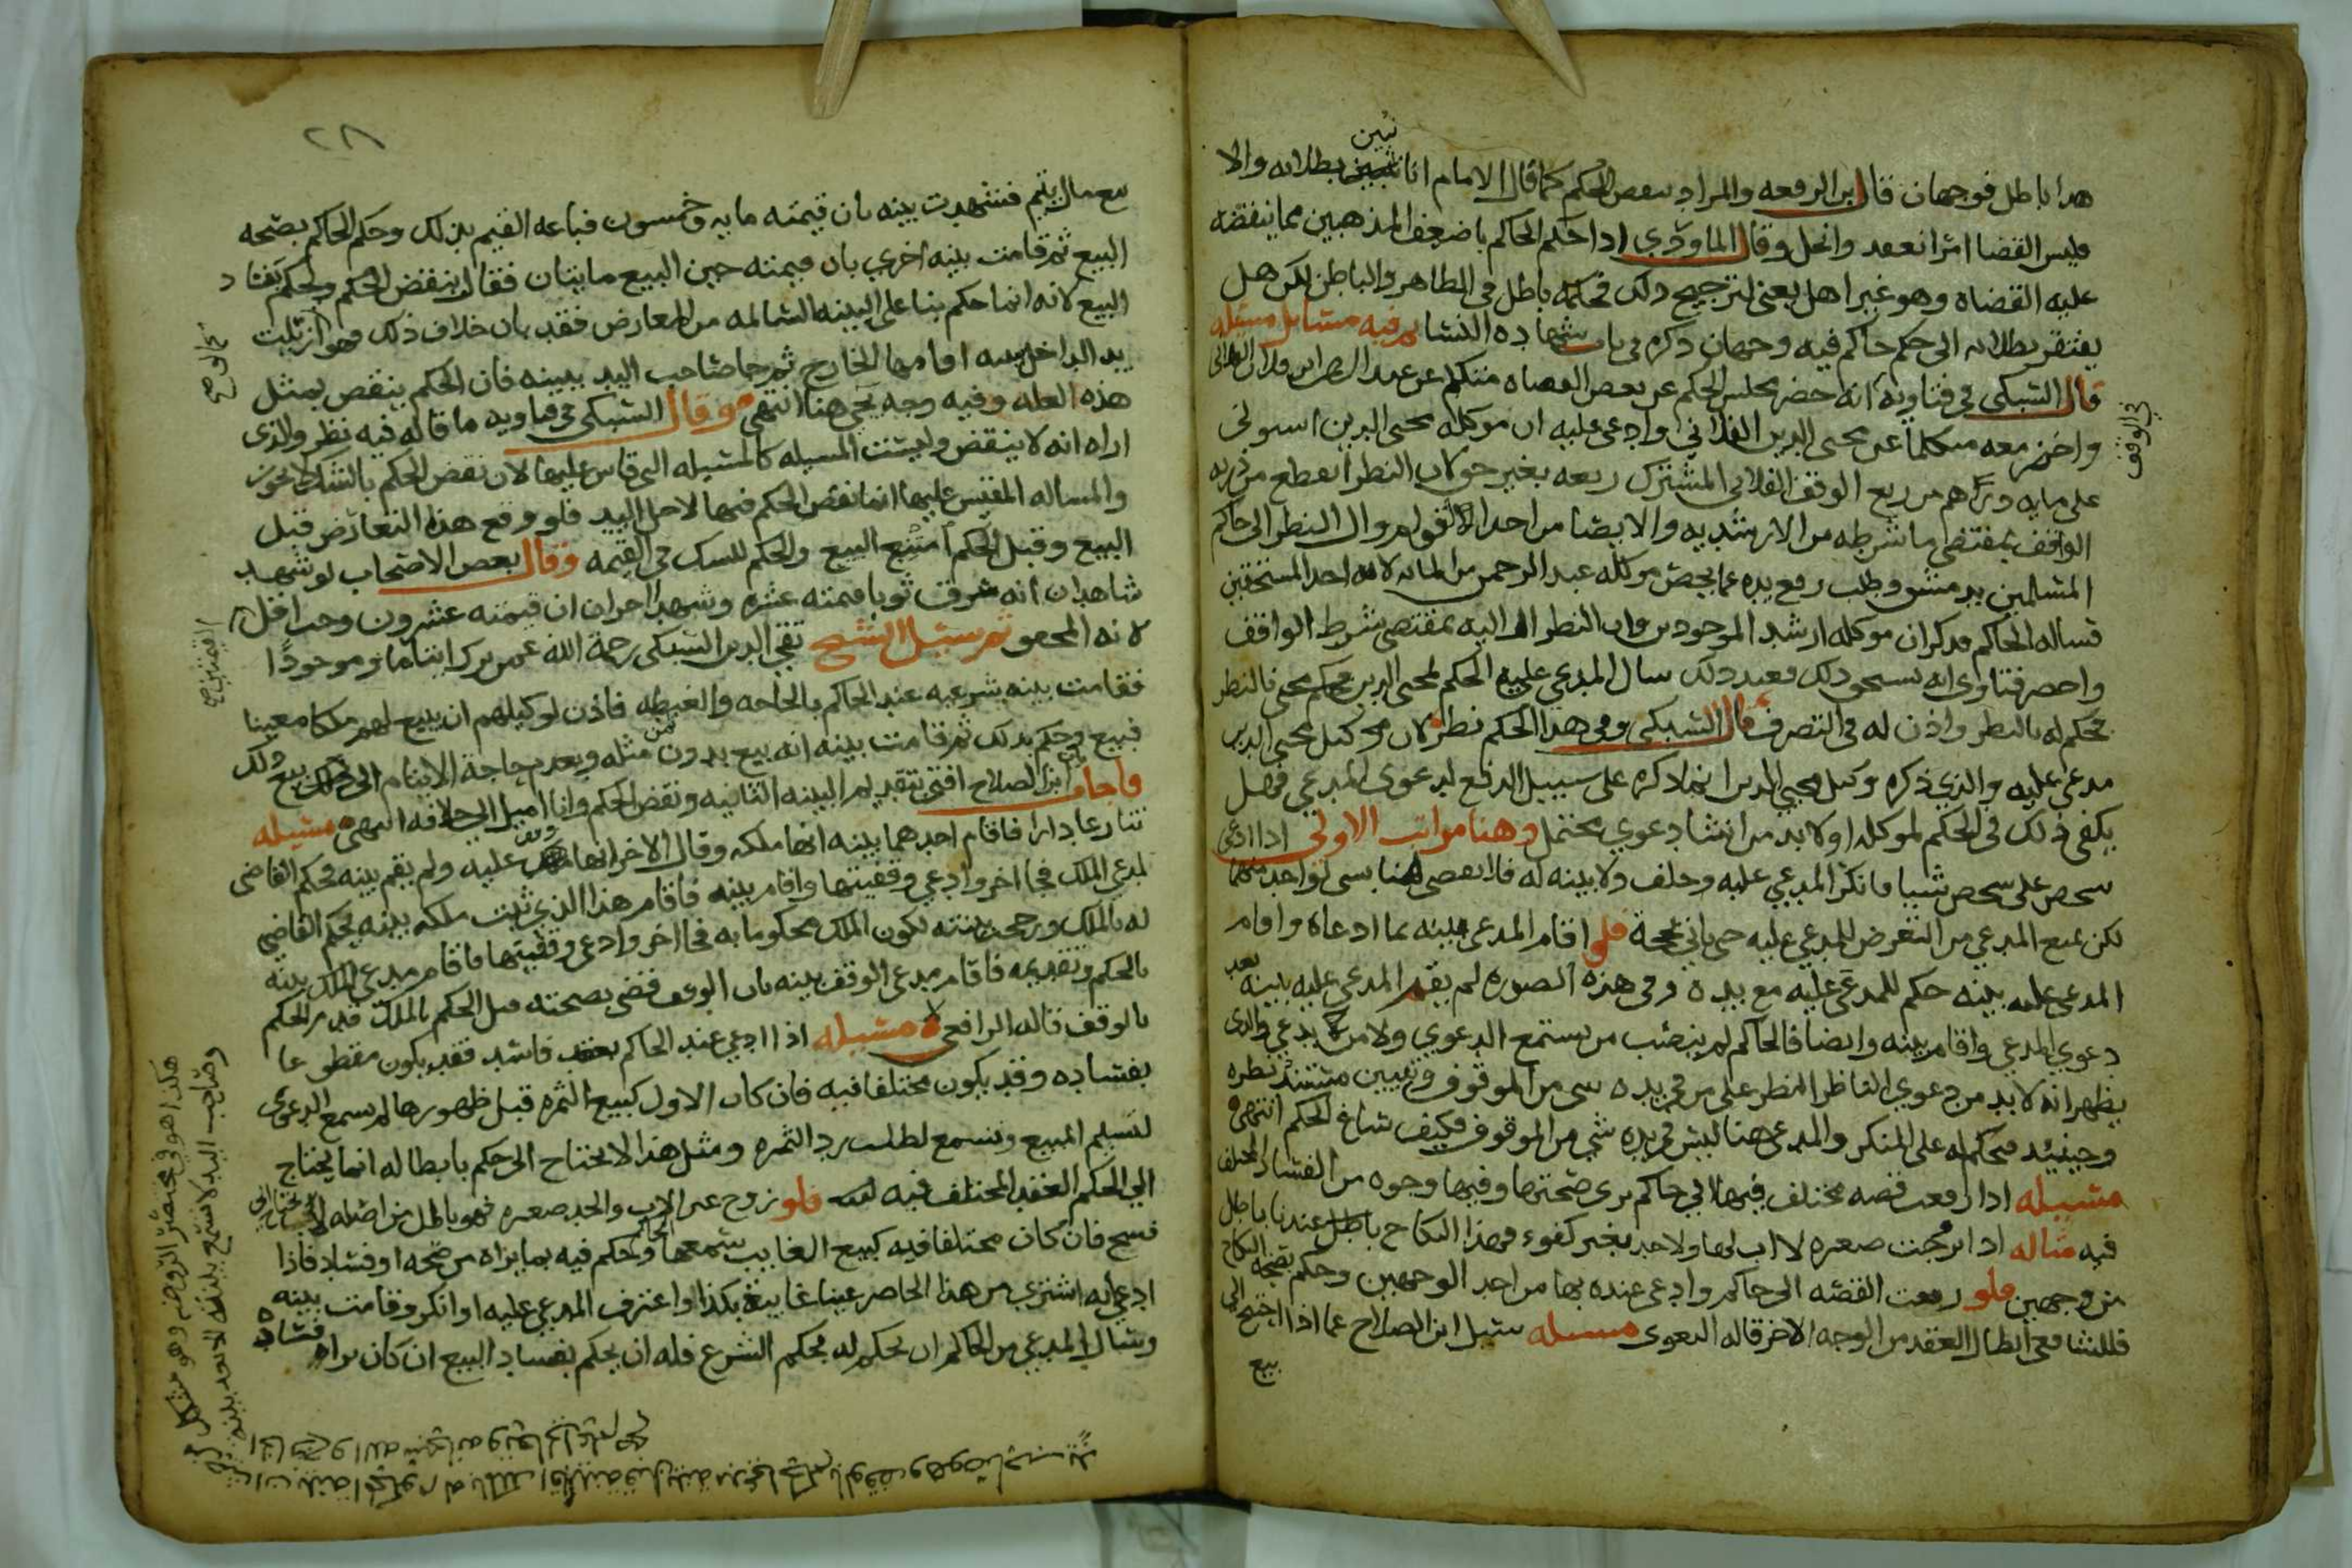 هدا باطل فوجهان قال ابن الرفعه والمراد بنقص الحكم كما قال الامام انا نتبين بطلانه والا
فليس القضا امرا نعقد وانحل وقال الماوردي ادا حكم الحاكم باضعف المذهبين مما ينقضه
عليه القضاه وهو غير اهل يعني لترجيح دلك فحكمه باطل في الظاهر والباطن لكن هل
يفتقر بطلانه الى حكم حاكم فيه وجهان دكره في باب شهاده النسا فيه مسايل مسئله
قال السبكي في فتاويه انه حضر مجلس الحكم عن بعض القضاه متكلم عن عبد
واحضر معه متكلما عن محيي الدين الفلاني وادعى عليه ان موكله محيي الدين استولى
على مايه درهم من ريع الوقف الفلاني المشترك ريعه بغير حق وان النظر انقطع من دريه
الواقف بمقتضى ما شرطه من الارشديه والايصا من احد الاقوام وال النظر الى حاكم
المسلمين بدمشق وطلب رفع يده عما يخص موكله عبد الرحمن من المايه لانه احد المستحقين
فساله الحاكم فدكر ان موكله ارشد الموجودين وان النظر ال اليه بمقتضى شرط الواقف
واحضر فتاوى انه يستحق دلك فعند دلك سال المدعي عليه الحكم لمحيي الدين محكم محيى بالنظر
فحكم له بالنظر واذن له في التصرف قال السبكي وفي هدا الحكم نظر لان موكل محيي الدين
مدعى عليه والذي ذكره وكيل محيي الدين انما ذكره على سبيل الدفع لدعوى المدعي فهل
يكفي ذلك في الحكم لموكله او لا بد من انشا دعوى محتمل وهنا مراتب الاولى ادا ادعى
شخص على شخص شيا فانكر المدعي عليه وحلف ولا بينه له فلا نقضي هنا بشي لواحد منهما
لكن نمنع المدعي من التعرض للمدعي عليه حتى ياتي بحجة فلو اقام المدعي بينه بما ادعاه واقام
المدعي عليه بينه حكم للمدعى عليه مع يده وفي هذه الصوره لم يقم المدعي عليه بينه بعد
دعوى المدعي واقام بينه وايضا فالحاكم لم ينصب من يستمع الدعوى ولا من يدعي والذي
يظهر انه لا بد من دعوى الناظر النظر على من في يده شي من الموقوف وتعيين مستند نظره
وحينيد فحكم له على المنكر والمدعي هنا ليس في يده شي من الموقوف فكيف ساغ الحكم انتهى
مسئله ادا رفعت قصه مختلف فيها الى حاكم يرى صحتها وفيها وجوه من الفساد المختلف
فيه مثاله ادا زوجت صغيره لا اب لها ولا جد بغير كفوء فهذا النكاح باطل عندنا باطل
من وجهين فلو رفعت القضيه الى حاكم وادعى عنده بها من احد الوجهين وحكم بصحه النكاح
فللشافعي ابطال العقد من الوجه الاخر قاله البغوى مسئله سئل ابن الصلاح عما اذا احتيج الى
بيع
في الوقف
٢٨
بيع مال يتيم فشهدت بينه بان قيمته مايه وخمسون فباعه القيم بذلك وحكم الحاكم بصحه
البيع ثم قامت بينه اخرى بان قيمته حين البيع مايتان فقال ينقض الحكم ويحكم بفساد
البيع لانه انما حكم بنا على البينه السالمه من المعارض فقد بان خلاف ذلك فهو كما ازيلت
يد الداخل ببينه اقامها الخارج ثم جا صاحب اليد ببينه فان الحكم ينقض بمثل
هذه العله وفيه وجه يجي هنا انتهى وقال السبكي في فتاويه ما قاله فيه نظر والذي
اراه انه لا ينقض وليست المسيله كالمسيله التي قاس عليها لان نقض الحكم بالشك لا يجوز
والمساله المقيس عليها انما نقض الحكم فيها لاجل اليد فلو وقع هذا التعارض قبل
البيع وقبل الحكم امتنع البيع والحكم للشك في القيمه وقال بعض الاصحاب لو شهد
شاهدان انه سرق ثوبا قيمته عشره وشهد اخران ان قيمته عشرون وجب اقل
لانه المحقق ثم سئل الشيخ تقي الدين السبكي رحمة الله عمن ترك ايتاما وموجودا
فقامت بينه شرعيه عند الحاكم بالحاجه والغبطه فاذن لوكيلهم ان يبيع لهم ملكا معينا
فبيع وحكم بدلك ثم قامت بينه انه بيع بدون ثمن مثله وبعدم حاجة الايتام الى بيع ذلك
واجاب ابن الصلاح افتى بتقديم البينه الثانيه ونقض الحكم وانا اميل الى خلافه انتهى مسيله
تنازعا دارا فاقام احدهما بينه انها ملكه وقال الاخر انها وقف عليه ولم يقم بينه فحكم القاضي
لمدعي الملك فجا اخر وادعى وقفيتها واقام بينه فاقام هذا الذي ثبت ملكه بينه بحكم القاضي
له بالملك ورجحت بينته لكون الملك محكوما به فجا اخر وادعى وقفيتها فاقام مدعي الملك بينه
بالحكم وتقديمه فاقام مدعي الوقف بينه بان الوقف قضي بصحته قبل الحكم بالملك قدم الحكم
بالوقف قاله الرافعي مسيله اذا ادعى عند الحاكم بعقد فاسد فقد يكون مقطوعا
بفساده وقد يكون مختلفا فيه فان كان الاول كبيع الثمره قبل ظهورها لم يسمع الدعوى
لتسليم المبيع وتسمع لطلب رد الثمره ومثل هذا لا يحتاج الى حكم بابطاله انما يحتاج
الي الحكم العقد المختلف فيه فلو زوج غير الاب والجد صغيره فهو باطل من اصله لا يحتاج الى
فسخ فان كان مختلفا فيه كبيع الغايب سمعها الحاكم وحكم فيه بما يراه من صحه او فساد فاذا
ادعى انه اشترى من هذا الحاضر عينا غايبة بكذا واعترف المدعي عليه او انكر وقامت بينه
وسال المدعي من الحاكم ان يحكم له بحكم الشرع فله ان يحكم بفساد البيع ان كان يراه فساده
هكذا هو في مختصر الروضه وهو مشكل
وصاحب اليد لا تسمع بينته الا بعد بينه